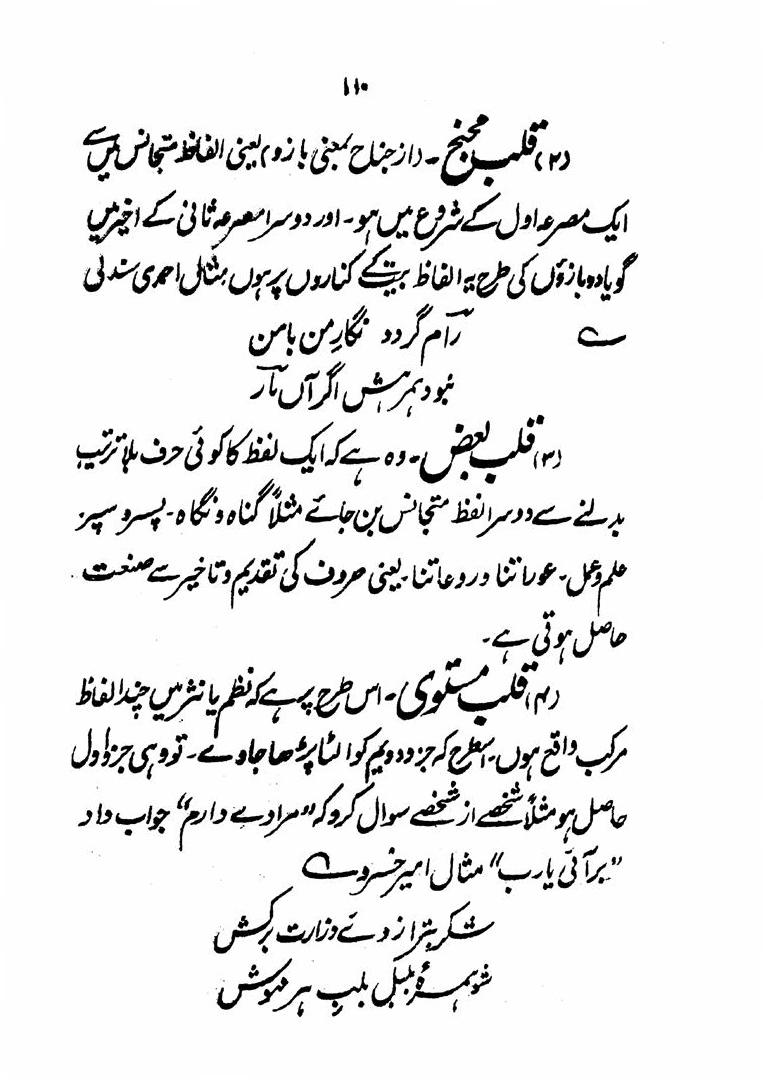 ۱۱۰
(۲) قلب مجنح۔ (از جناح بمعنی بازو) یعنی الفاظ متجانس میں سے
ایک مصرعہ اول کے شروع میں ہو۔ اور دوسرا مصرعہ ثانی کے اخیر میں
گویا دو بازوؤں کی طرح یہ الفاظ بیت کے کناروں پر ہوں مثال احمدی سندلی
رام گردد نگارِ من با من ؎
نبود ہمرہش اگر آں مار
(۳) قلب بعض۔ وہ ہے کہ ایک لفظ کا کوئی حرف بلا ترتیب
بدلنے سے دوسرا لفظ متجانس بن جائے مثلاً گناہ و نگاہ۔ پسر و سپر
علم و عمل۔ عوراتنا و روعاتنا۔ یعنی حروف کی تقدیم و تاخیر سے صنعت
حاصل ہوتی ہے۔
(۴) قلب مستوی۔ اس طرح پر ہے کہ نظم یا نثر میں چند الفاظ
مرکب واقع ہوں۔ اسطرح کہ جزو دویم کو الٹا پڑھا جاوے۔ تو وہی جزو اول
حاصل ہو مثلاً شخصے از شخصے سوال کرو کہ "مرادے دارم" جواب داد
"برآئی یارب" مثال امیر خسرو ؎
شکر بترازوئے وزارت برکش
شو ہمرہ بلبل بلب ہر مہوش